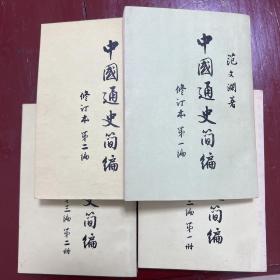 中國通史简编
修订本 第二编
范文瀾著
中國通史简编
修订本 第一编
史简编
三编 第二册
简编
编 第一册